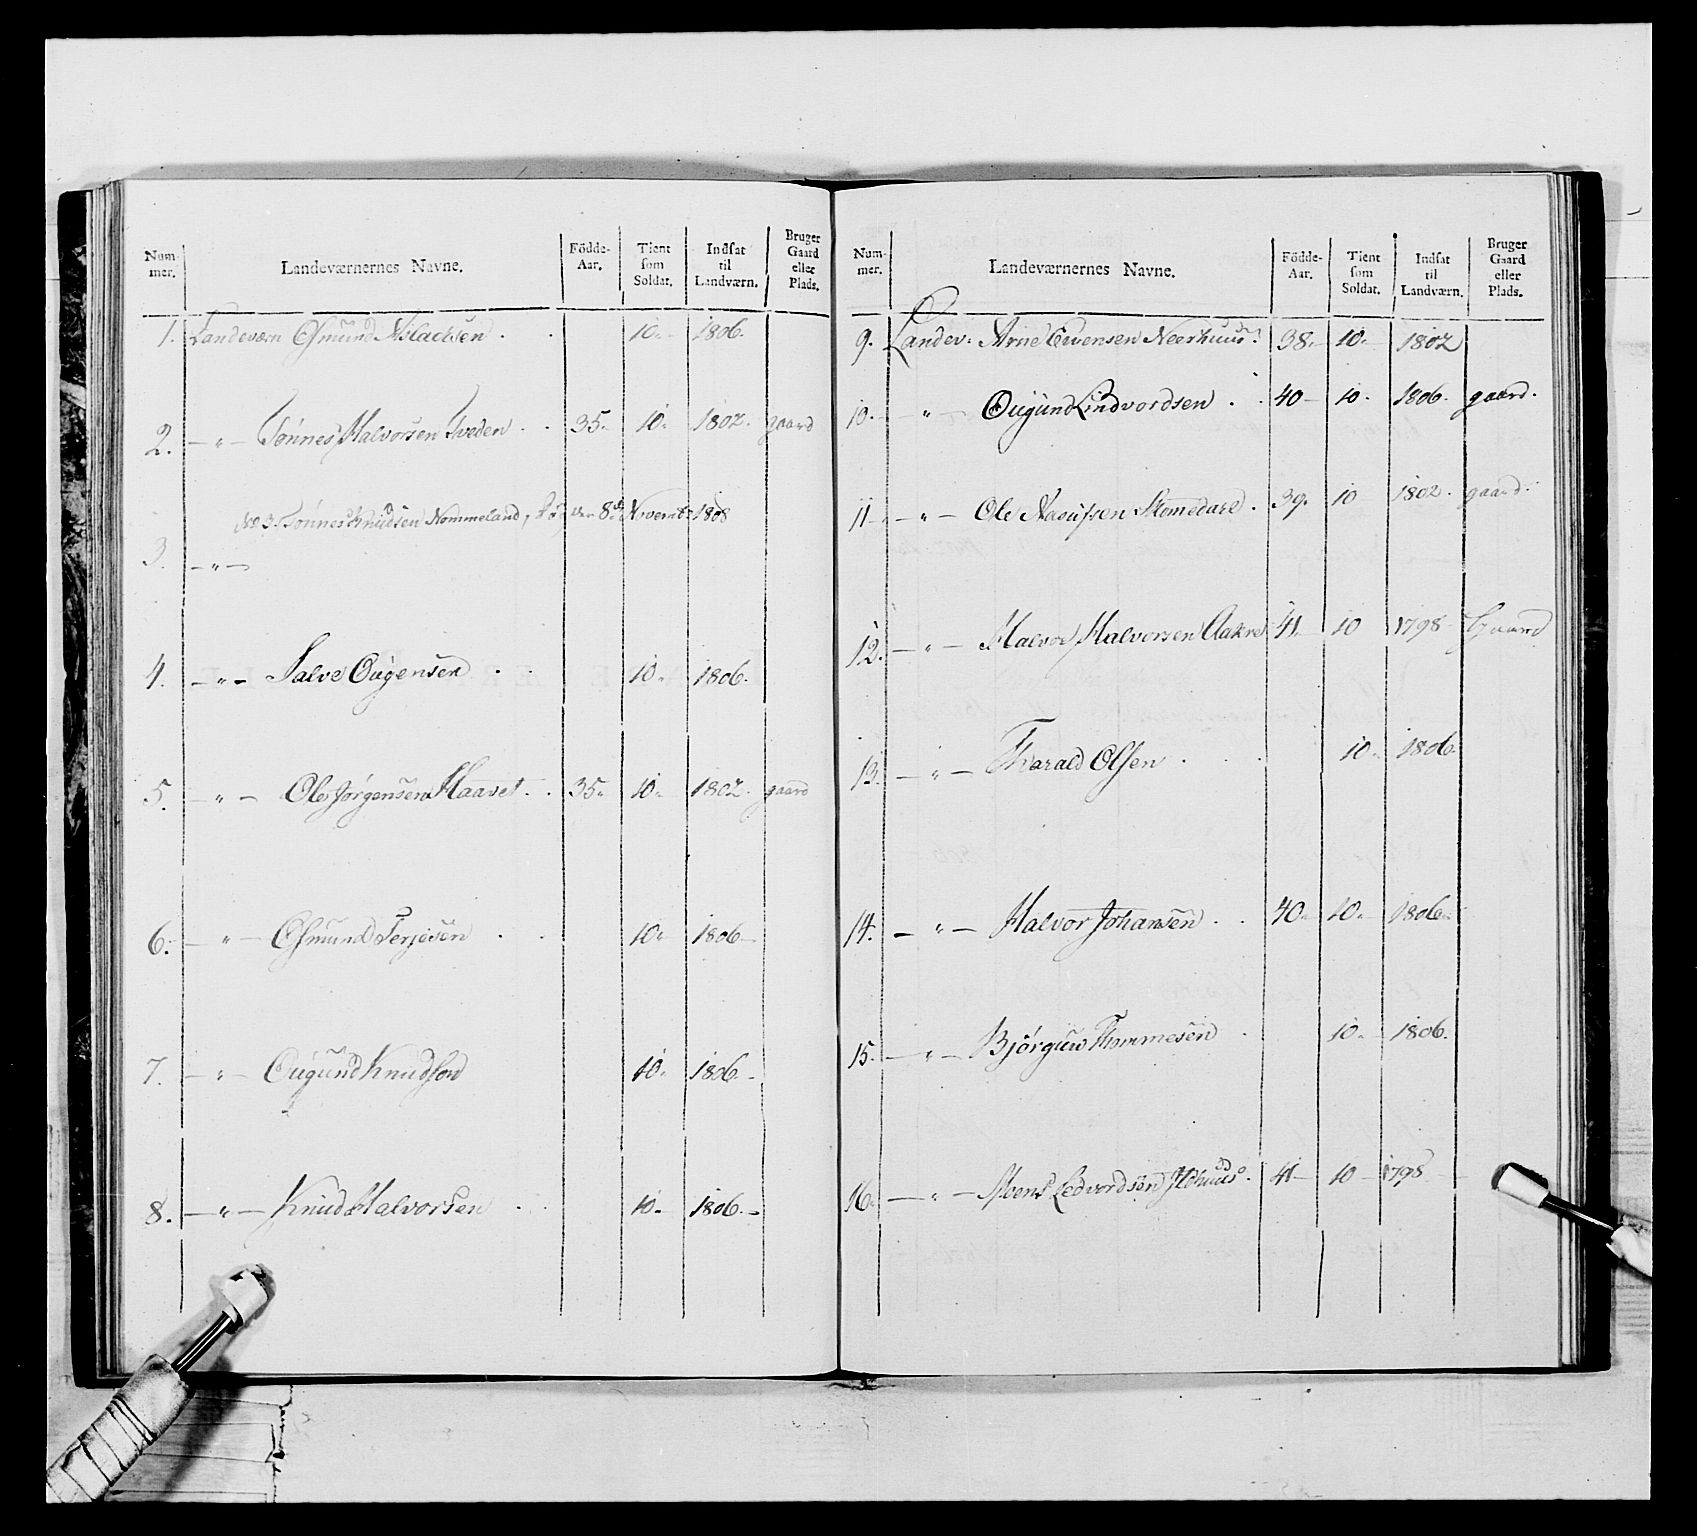 Num-mer. Landeværnernes Navne. Födde-Aar. Tient som Soldat. Indsat til Landværn. Bruger Gaard eller Plads.
1. Landeværn Osmund Aslachsen . . 10. 1806.
2. —"— Tønnes Halvorsen Tveden . . 35. 10. 1802. gaard
No 3. Tönnes Knudsen Nommeland, den 8de Novembr 1808
3. —"—
4. —"— Salve Ougensen . . 10. 1806.
5. —"— Ole Jørgensen Haavet . . 35. 10. 1802. gaard
6. —"— Osmund Terjesen . . 10. 1806.
7. —"— Ougund Knudsen 10. 1806.
8. —"— Knud Halvorsen . . 10. 1806.
Num-mer. Landeværnernes Navne. Födde-Aar. Tient som Soldat. Indsat til Landværn. Bruger Gaard eller Plads.
9. Landev: Arne Evensen Neerhuus. 38. 10. 1802
10. —"— Ougund Lindvordsen . . 40 10. 1806. gaard.
11 —"— Ole Aasufsen . 39. 10 1802. gaard.
12. —"— Halvor Halvorsen Aakre 41. 10 1798 Gaard
13. —"— Tharald Olsen . . . 10. 1806.
14. —"— Halvor Johansen . . 40. 10. 1806.
15. —"— Bjørguw Thommesen . 10. 1806.
16. —"— Ledvordsen 41 10 1798